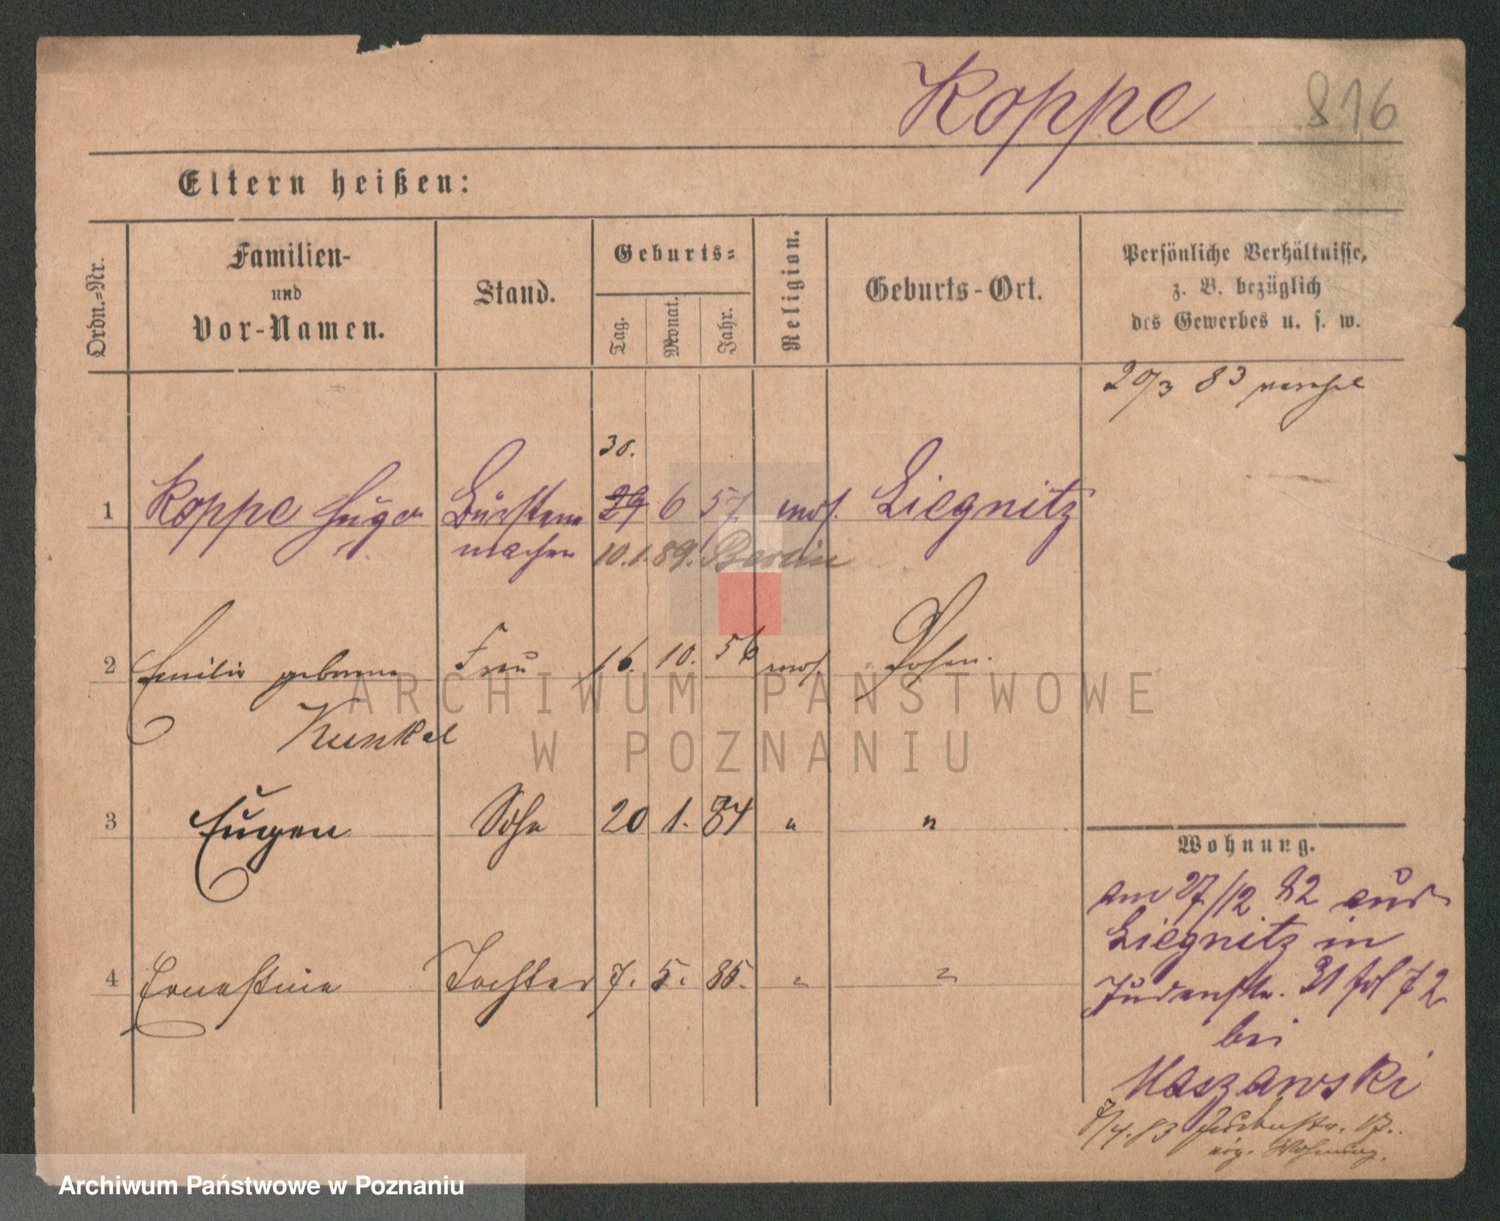 Koppe 816
Eltern heißen:
Ordn.-Nr. Familien- und Vor-Namen. Stand. Geburts- Tag. Monat. Jahr. Religion. Geburts-Ort. Persönliche Verhältnisse, z. B. bezüglich des Gewerbes u. s. w.
20/3 83
30.
1 Koppe Hugo Bürsten 29 6 57 mos. Liegnitz
macher 10.1.89. Berlin
2 Emilie geborene Frau 16. 10. 56 mos. Posen.
Kunkel
3 Eugen Sohn 20 1. 84 " "
4 Ernestine Tochter 7. 5. 85. " "
Wohnung.
am 27/12 82 aus
Liegnitz in
Judenstr. 31 72
bei
Maszawski
7/4.83 17.
eig. Wohnung.
ARCHIWUM PAŃSTWOWE
W POZNANIU
Archiwum Państwowe w Poznaniu